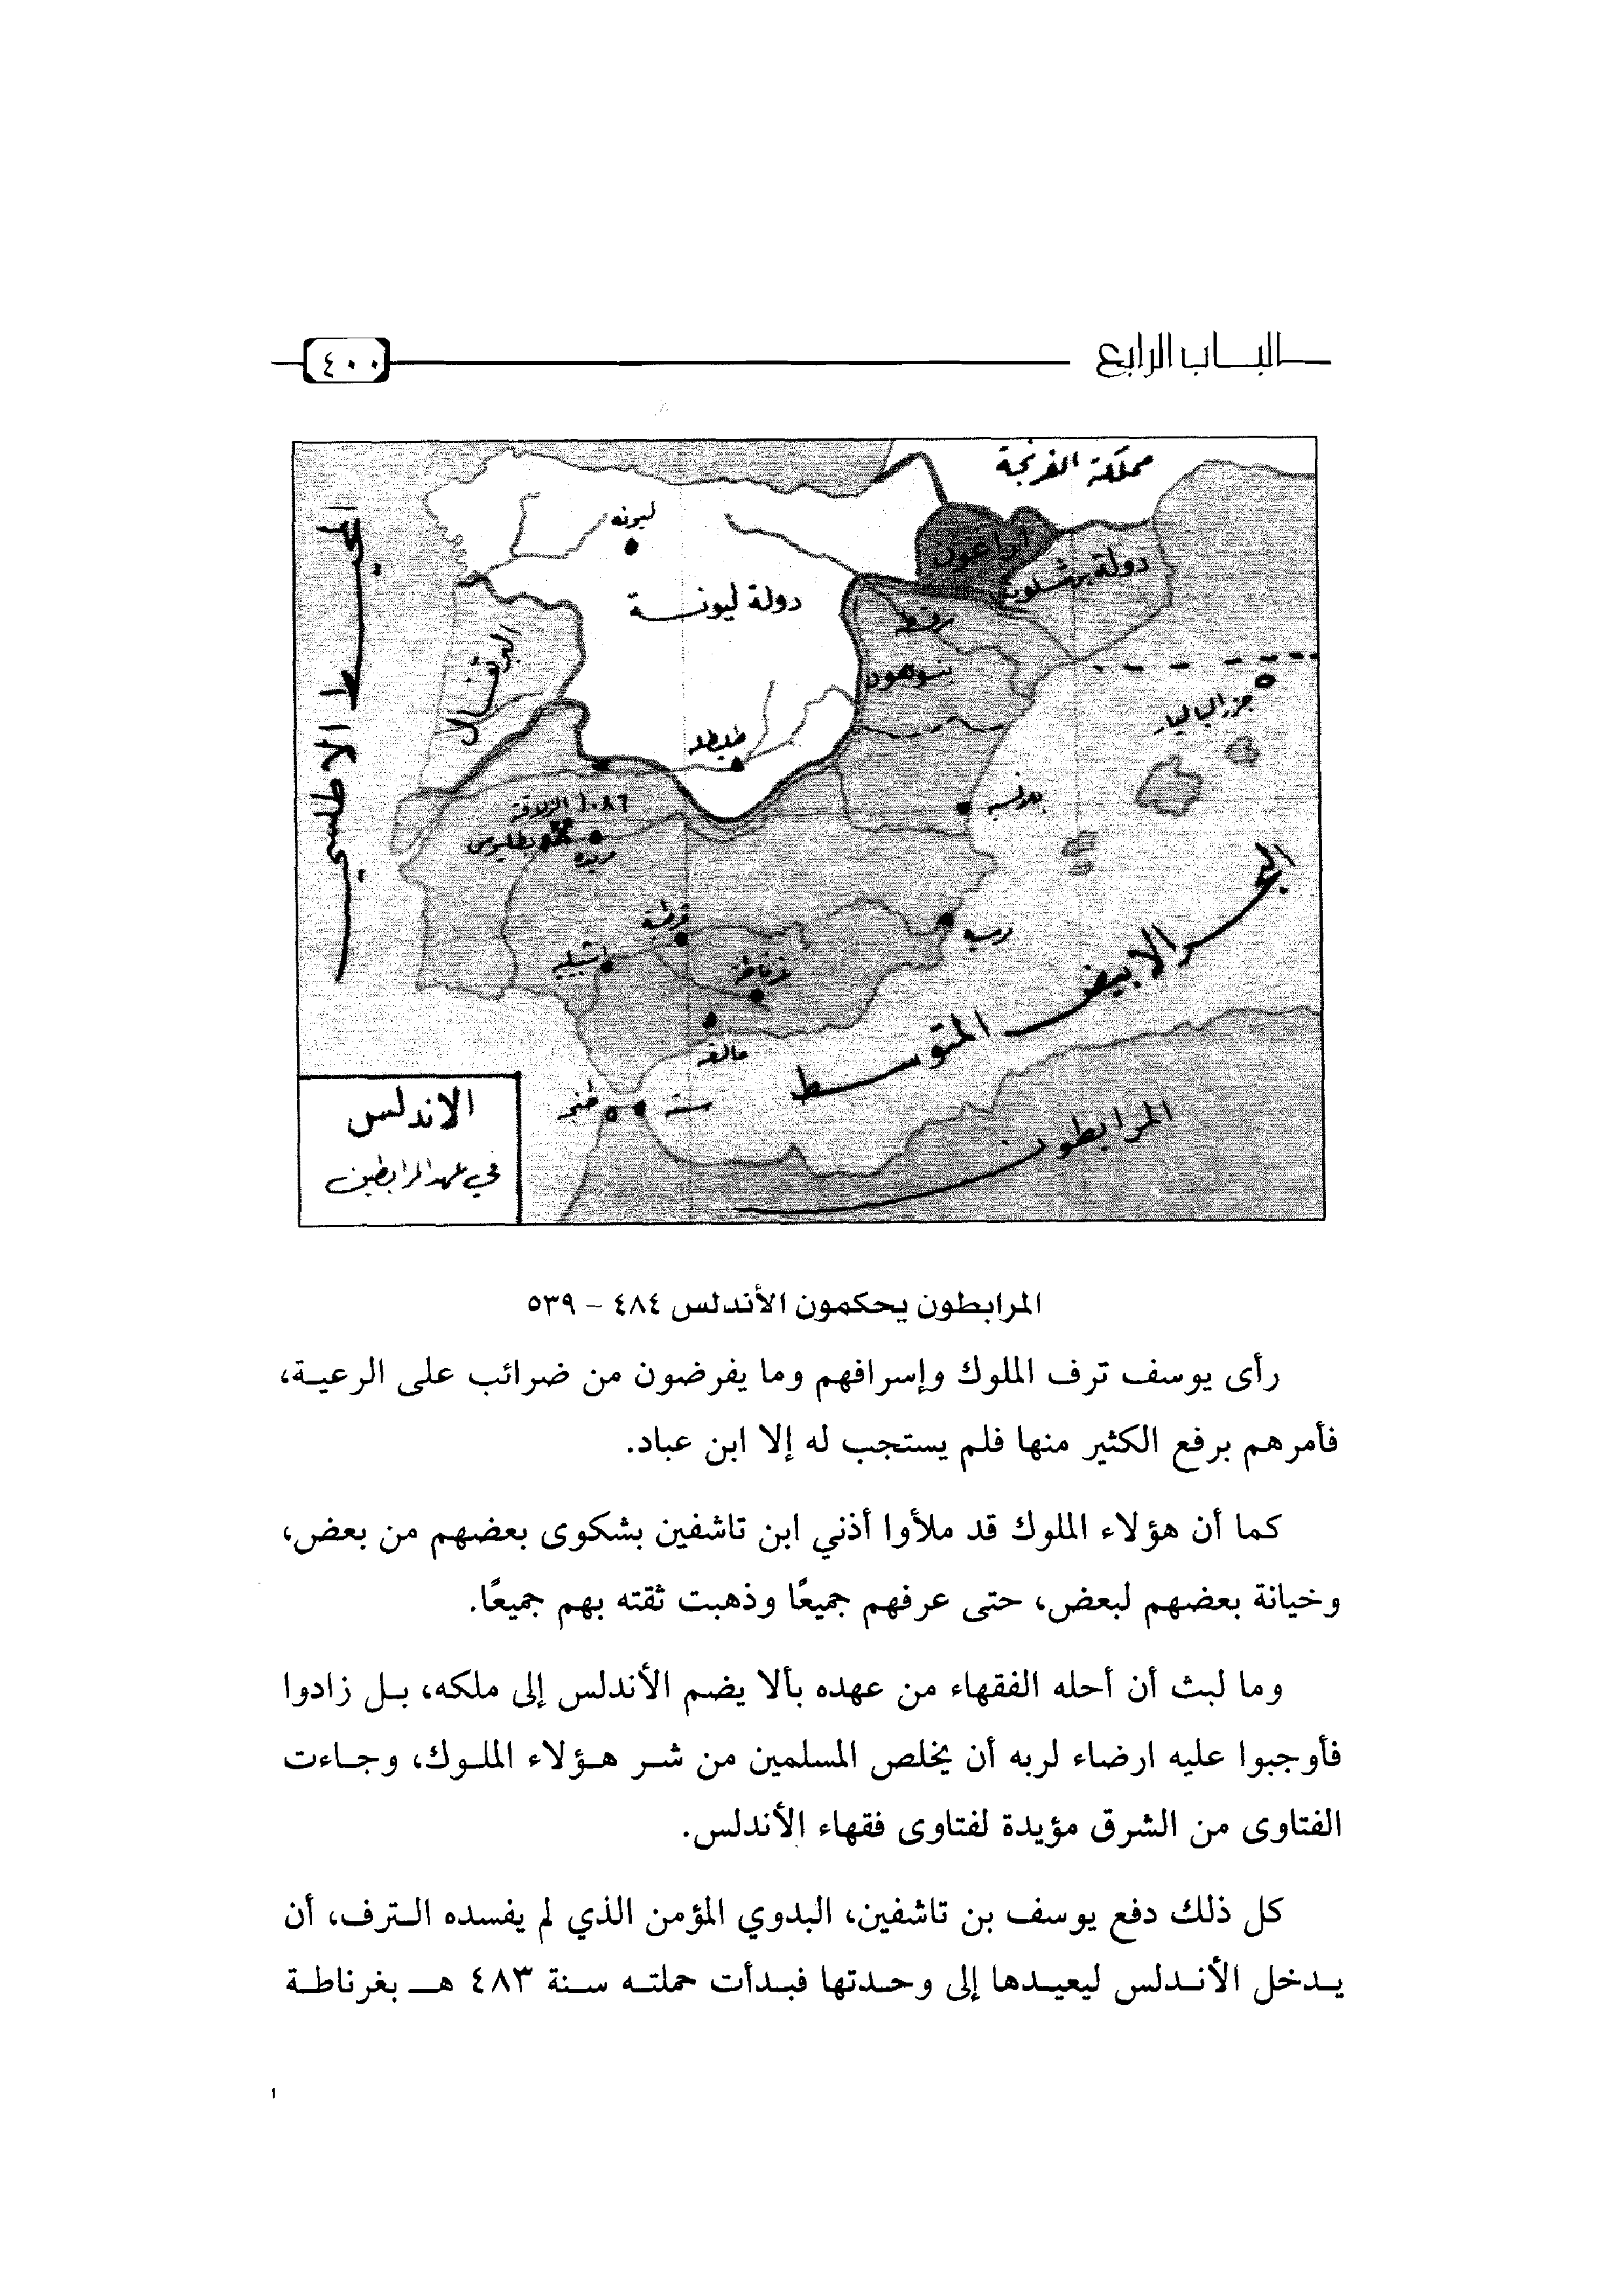 الباب الرابع
٤٠٠
مملكة الفرنجة
ليونه
أراغون
دولة برشلونة
دولة ليونة
البرتغال
بنوهود
جزر الباليار
طليطله
١٠٨٦ الزلاقة
بطليوس
مريده
قرطبة
اشبيلية
غرناطة
مالقه
طنجه
سبتة
البحر الابيض المتوسط
البحر المحيط الاطلسي
المرابطون
الاندلس
في عهد المرابطين
المرابطون يحكمون الأندلس ٤٨٤ - ٥٣٩
رأى يوسف ترف الملوك وإسرافهم وما يفرضون من ضرائب على الرعية،
فأمرهم برفع الكثير منها فلم يستجب له إلا ابن عباد.
كما أن هؤلاء الملوك قد ملأوا أذني ابن تاشفين بشكوى بعضهم من بعض،
وخيانة بعضهم لبعض، حتى عرفهم جميعًا وذهبت ثقته بهم جميعًا.
وما لبث أن أحله الفقهاء من عهده بألا يضم الأندلس إلى ملكه، بل زادوا
فأوجبوا عليه ارضاء لربه أن يخلص المسلمين من شر هؤلاء الملوك، وجاءت
الفتاوى من الشرق مؤيدة لفتاوى فقهاء الأندلس.
كل ذلك دفع يوسف بن تاشفين، البدوي المؤمن الذي لم يفسده الترف، أن
يدخل الأندلس ليعيدها إلى وحدتها فبدأت حملته سنة ٤٨٣ هـ بغرناطة